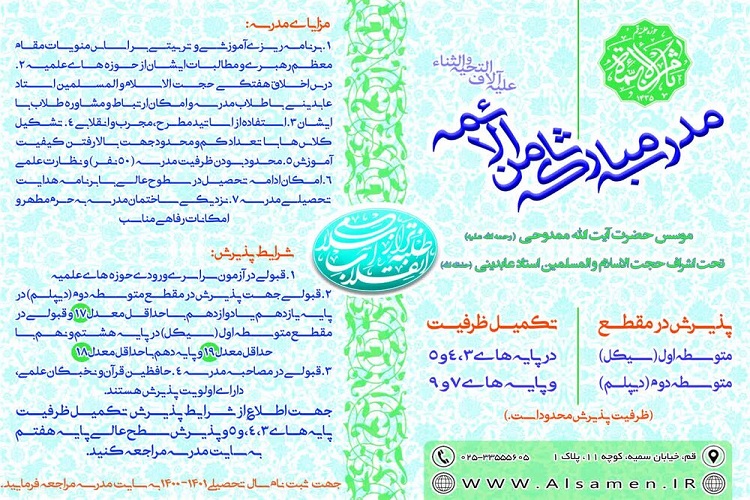 ثامن الائمه
۱۴۳۵
علیه آلاف
التحیة والثناء
مدرسه مبارکه ثامن الائمه
موسس حضرت آیت الله ممدوحی (رحمه الله علیه)
تحت اشراف حجت الاسلام و المسلمین استاد عابدینی (حفظه الله)
پذیرش در مقطع
متوسطه اول (سیکل)
متوسطه دوم (دیپلم)
تکمیل ظرفیت
در پایه های ۳،۴ و ۵
و پایه های ۷ و ۹
(ظرفیت پذیرش محدود است.)
قم، خیابان سمیه، کوچه ۱۱، پلاک ۱
۰۲۵-۳۳۵۵۵۶۰۵
WWW.Alsamen.IR
مزایای مدرسه:
۱. برنامه ریزی آموزشی و تربیتی بر اساس منویات مقام
معظم رهبری و مطالبات ایشان از حوزه های علمیه ۲.
درس اخلاق هفتگی حجت الاسلام و المسلمین استاد
عابدینی با طلاب مدرسه و امکان ارتباط و مشاوره طلاب با
ایشان ۳. استفاده از اساتید مطرح، مجرب و انقلابی ۴. تشکیل
کلاس ها با تعداد کم و محدود جهت بالا رفتن کیفیت
آموزش ۵. محدود بودن ظرفیت مدرسه (۵۰ نفر) و نظارت علمی
۶. امکان ادامه تحصیل در سطوح عالی با برنامه هدایت
تحصیلی مدرسه ۷. نزدیکی ساختمان مدرسه به حرم مطهر و
امکانات رفاهی مناسب
طلبه تراز
انقلاب اسلامی
شرایط پذیرش:
۱. قبولی در آزمون سراسری ورودی حوزه های علمیه
۲. قبولی جهت پذیرش در مقطع متوسطه دوم (دیپلم) در
پایه یازدهم یا دوازدهم با حداقل معدل ۱۷ و قبولی در
مقطع متوسطه اول (سیکل) در پایه هشتم و نهم با
حداقل معدل ۱۹ و پایه دهم با حداقل معدل ۱۸
۳. قبولی در مصاحبه مدرسه ۴. حافظین قرآن و نخبگان علمی،
دارای اولویت پذیرش هستند.
جهت اطلاع از شرایط پذیرش تکمیل ظرفیت
پایه های ۳،۴ و ۵ و پذیرش سطح عالی پایه هفتم
به سایت مدرسه مراجعه کنید.
جهت ثبت نام سال تحصیلی ۱۴۰۱-۱۴۰۰ به سایت مدرسه مراجعه فرمایید.